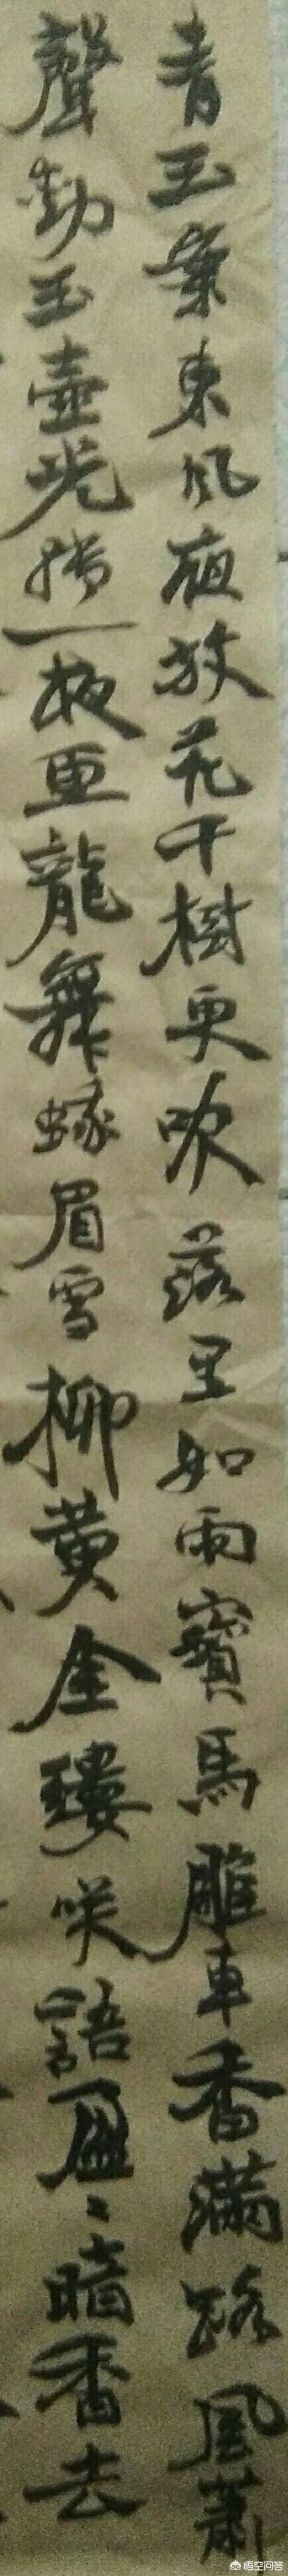 青玉案東風夜放花千樹更吹落星如雨寳馬雕車香滿路風蕭
聲動玉壺光轉一夜魚龍舞蛾眉雪柳黄金縷咲語盈〻暗香去
悟空问答